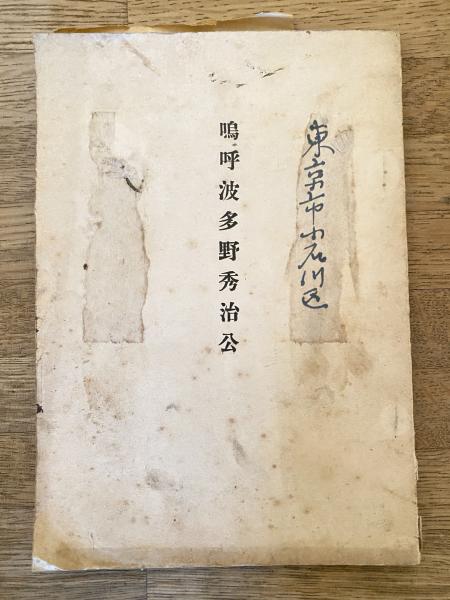 東京市小石川区
嗚呼波多野秀治公